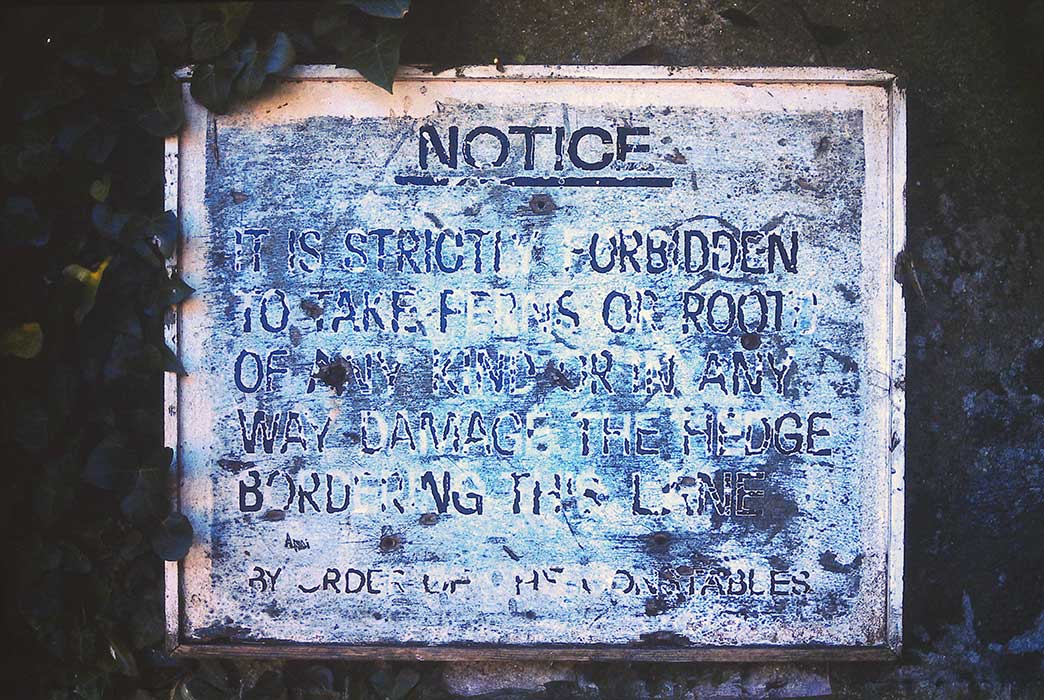 NOTICE
IT IS STRICTLY FORBIDDEN
TO TAKE FERNS OR ROOTS
OF ANY KIND OR IN ANY
WAY DAMAGE THE HEDGE
BORDERING THIS LANE
BY ORDER OF THE CONSTABLES.